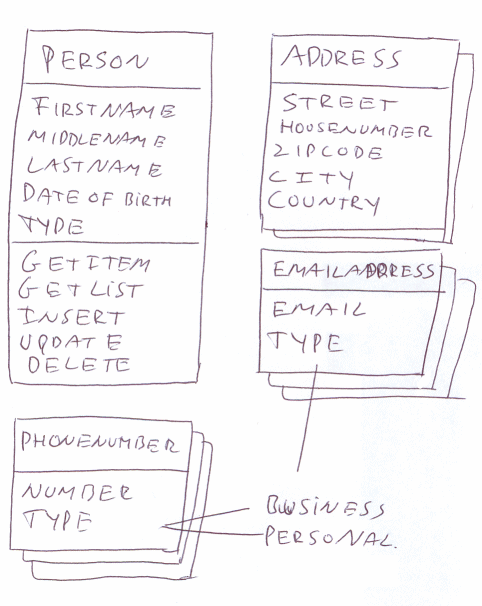 PERSON
FIRSTNAME
MIDDLENAME
LASTNAME
DATE OF BIRTH
TYPE
GETITEM
GETLIST
INSERT
UPDATE
DELETE
ADDRESS
STREET
HOUSENUMBER
ZIPCODE
CITY
COUNTRY
EMAILADDRESS
EMAIL
TYPE
PHONENUMBER
NUMBER
TYPE
BUSINESS
PERSONAL.